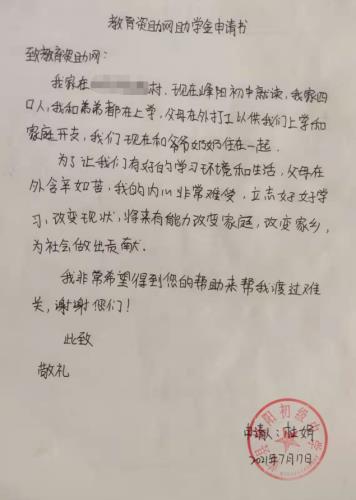 教育资助网助学金申请书
致教育资助网：
我家在 村，现在峰阳初中就读，我家四
口人，我和弟弟都在上学，父母在外打工以供我们上学和
家庭开支，我们现在和爷爷奶奶住在一起。
为了让我们有好的学习环境和生活，父母在
外含辛如苦，我的内心非常难受，立志好好学
习，改变现状，将来有能力改变家庭，改变家乡，
为社会做出贡献。
我非常希望得到您的帮助来帮我渡过难
关，谢谢您们！
此致
敬礼
阳初级中学
申请人：娟
2021年7月17日